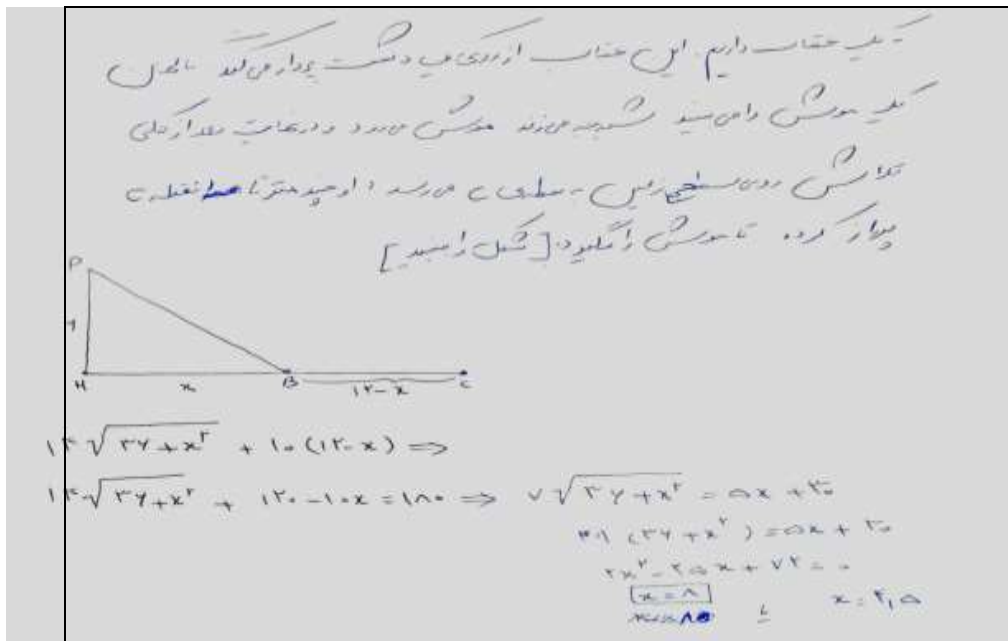 یک عقاب داریم. این عقاب از روی دشت پرواز می‌کند
یک موش را می‌بیند شیرجه می‌زند موش می‌دود و در نهایت بعد از کلی
تلاش روی سطح زمین می‌رسد او چند متر تا نقطه c
پرواز کرده تا موش را بگیرد؟ [شکل را ببینید]
P
۶
H x B ۱۲-x c
۱۴√۳۶+x۲ + ۱۰(۱۲-x) ⇒
۱۴√۳۶+x۲ + ۱۲۰-۱۰x=۱۸۰ ⇒ ۷√۳۶+x۲ = ۵x+۳۰
(۳۶+x۲) = ۵x+۳۰
۲x۲-۲۵x+۷۲=۰
x=۸
یا x=۴,۵